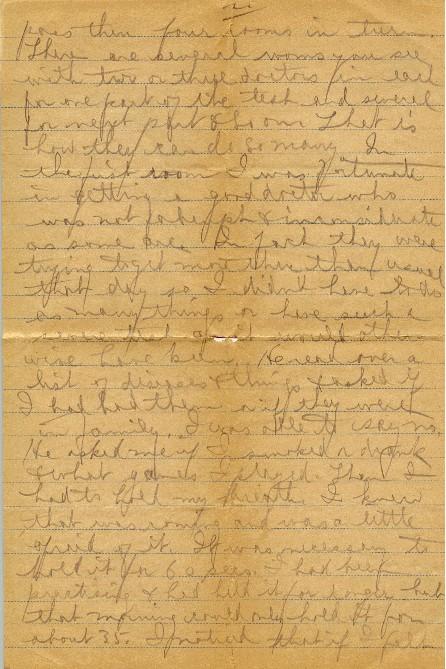 2.
pass then four rooms in turn.
There are several rooms you see
with two or three doctors in each
for one part of the test and several
for next part & so on. That is
how they can do so many. In
the first room I was fortunate
in getting a good doctor who
was not abrupt & inconsiderate
as some are. In fact they were
trying to get more thru than usual
that day so I didn't have to do
as many things or have such a
severe test as it would other
wise have been. He read over a
list of diseases & things & asked if
I had had them or if they were
in family. I was able to say no.
He asked me if I smoked or drank
& what games I played. Then I
had to hold my breath. I knew
that was coming and was a little
afraid of it. It was necessary to
hold it for 60 secs. I had been
practising & had held it for longer but
that morning could only hold it for
about 35. I noticed that if I felt